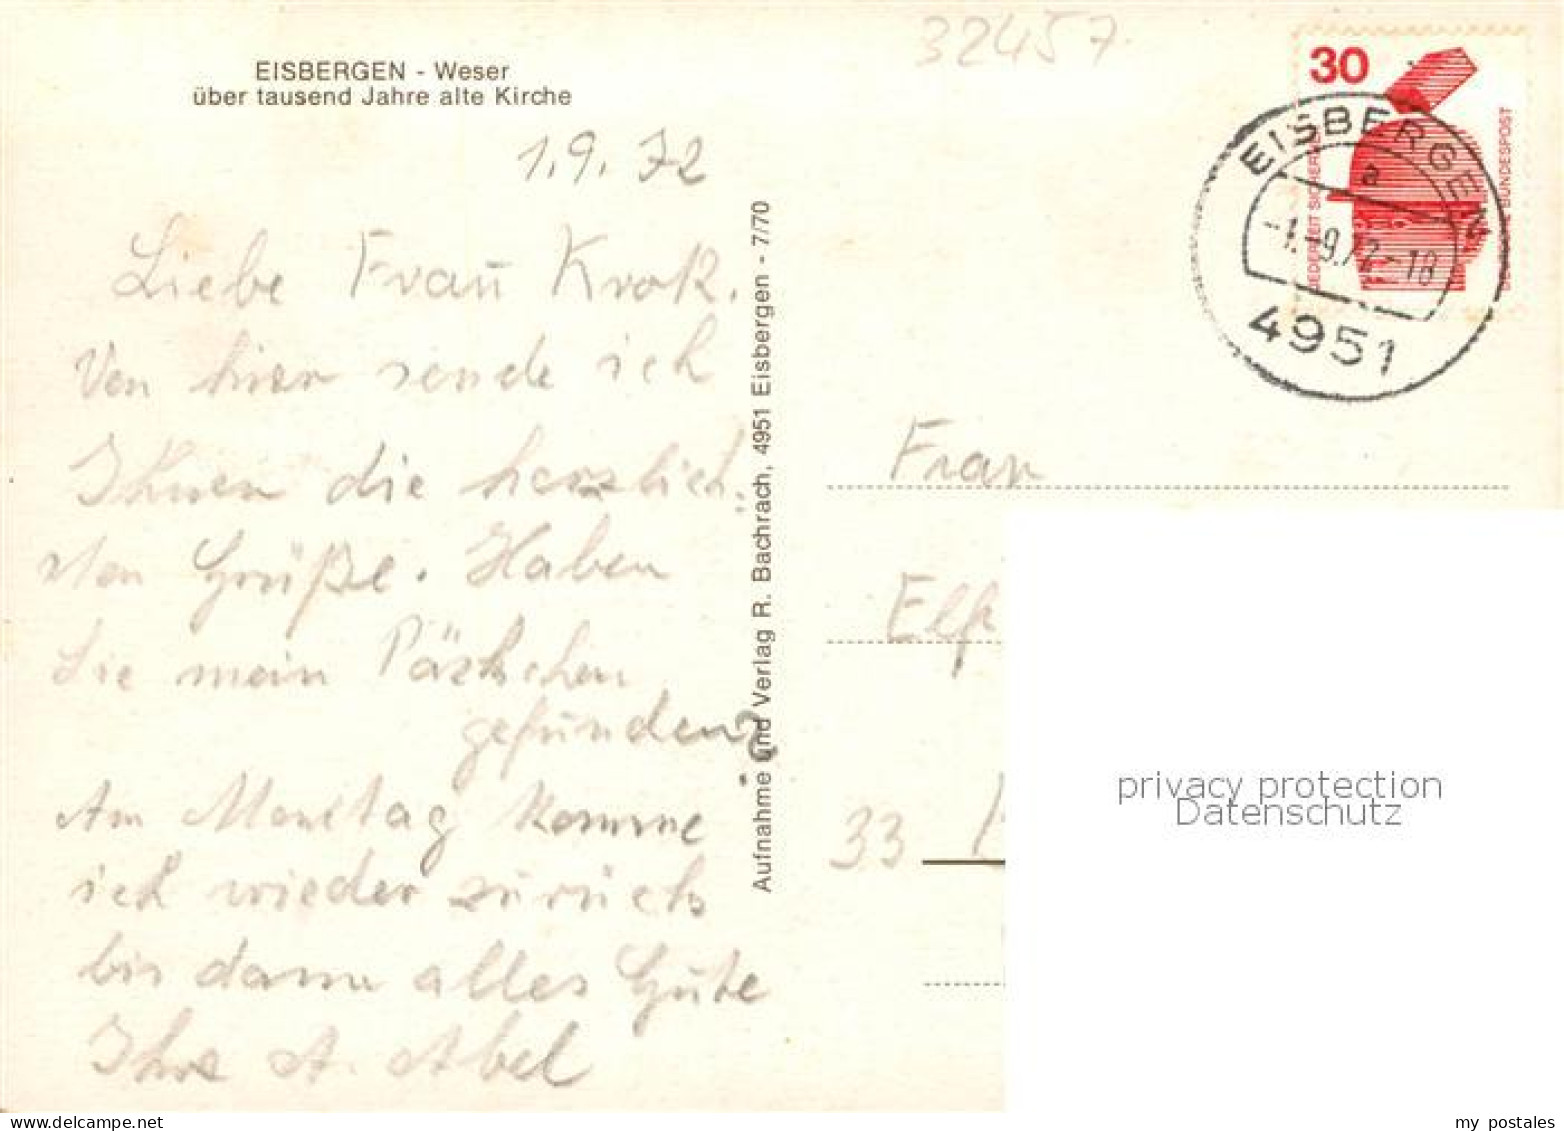 EISBERGEN - Weser
über tausend Jahre alte Kirche
32457
1.9.72
Liebe Frau Krok.
Von hier sende ich
Ihnen die herzlich-
sten Grüße. Haben
Sie mein Päckchen
gefunden?
Am Montag komme
ich wieder zurück
bis dann alles Gute
Ihre A. Abel
Aufnahme und Verlag R. Bachrach, 4951 Eisbergen - 7/70
30
JEDERZEIT SICHERHEIT
DEUTSCHE BUNDESPOST
EISBERGEN
a
-1.-9.72-18
4951
Frau
33
privacy protection
Datenschutz
my postales